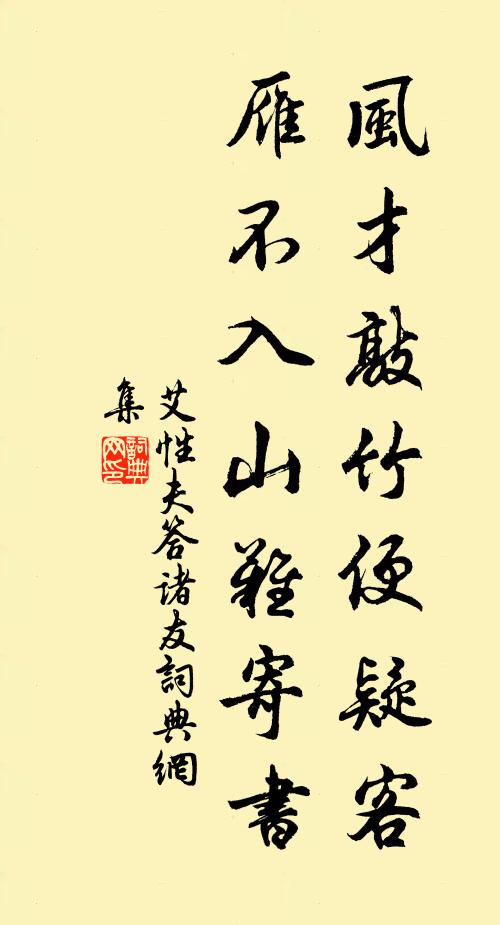 風才敲竹便疑客
雁不入山難寄書
艾性夫答诸友詞典網
集
詞典
网印